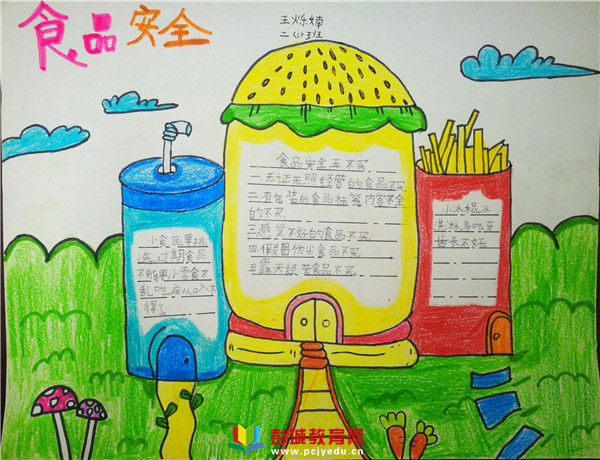 食品安全
王烁楠
二(1)班
食品安全五不买
一.无证无照经营的食品不买
二.有包装的食品标签内容不全
的不买.
三.感觉不好的食品不买.
四.假冒伪劣食品不买.
五.露天经营食品不买.
小食品要挑
选,过期食品
不能要小零食不
乱吃,病从口入不
得了.
小冰棍,冰
淇淋,多吃牙
齿长不好.
彭城教育网
www.pcjyedu.cn